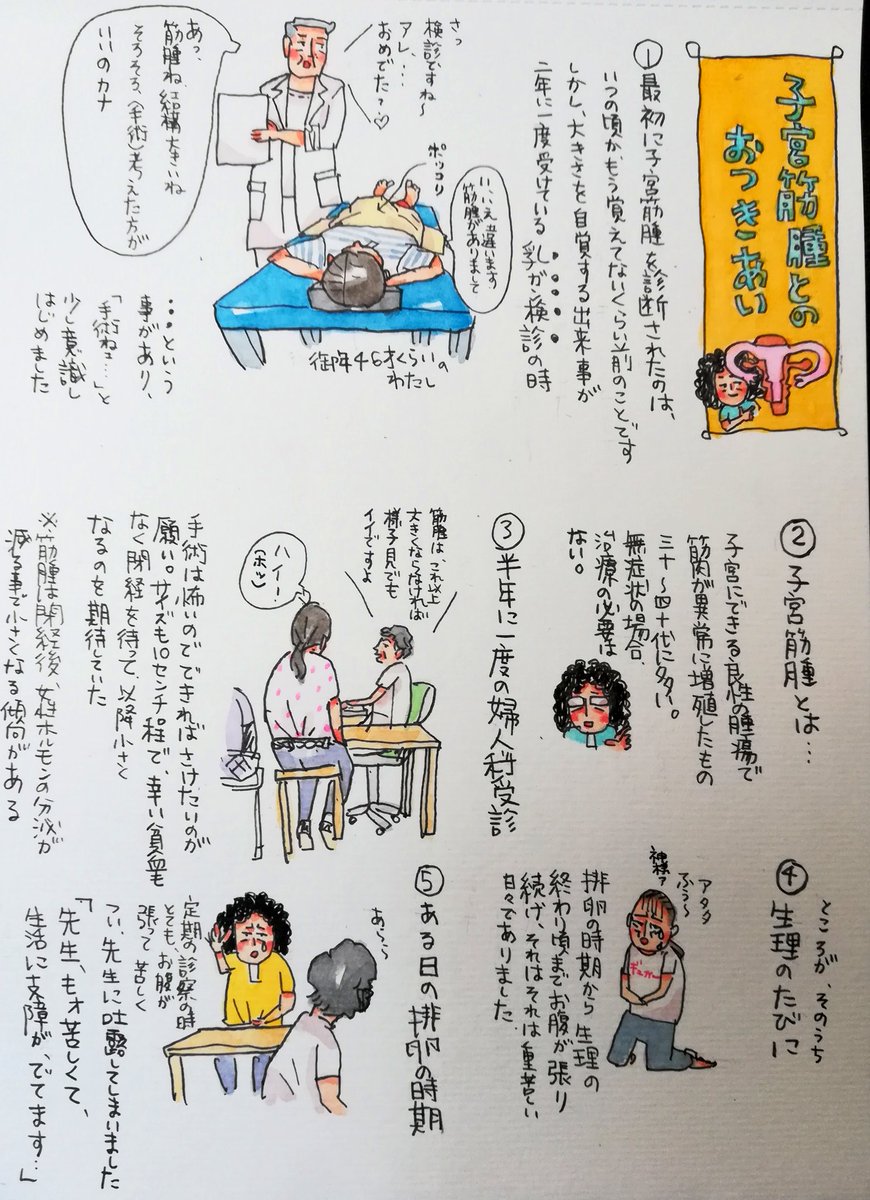 子宮筋腫との
おつきあい
①最初に子宮筋腫を診断されたのは、
いつの頃かもう覚えてないくらい前のことです
しかし、大きさを自覚する出来事が
二年に一度受けている乳がん検診の時
さっ
検診ですね~
アレ、…
おめでた?♡
いいえ違います
筋腫がありまして
ポッコリ
あっ、
筋腫ね、結構大きいね
そろそろ、〈手術〉考えた方が
いいのカナ
御年46才くらいの
わたし
・・・という
事があり、
「手術ねェ…」と
少し意識し
はじめました
②子宮筋腫とは…
子宮にできる良性の腫瘍で
筋肉が異常に増殖したもの
三十~四十代に多い。
無症状の場合、
治療の必要は
ない。
③半年に一度の婦人科受診
筋腫は、これ以上
大きくならなければ
様子見でも
イイですよ
ハイー!
(ホッ)
手術は怖いのでできればさけたいのが
願い。サイズも10センチ程で幸い貧血も
なく閉経を待って、以降小さく
なるのを期待していた
※筋腫は閉経後、女性ホルモンの分泌が
減る事で小さくなる傾向がある
ところが、そのうち
④生理のたびに
アタタ
ふぅ~
神様?
排卵の時期から生理の
終わり頃までお腹が張り
続け、それはそれは重苦しい
日々でありました
⑤ある日の排卵の時期
あら~
定期の診察の時
とても、お腹が
張って苦しく
つい、先生に吐露してしまいました
「先生、もォ苦しくて、
生活に支障が、でてます…」